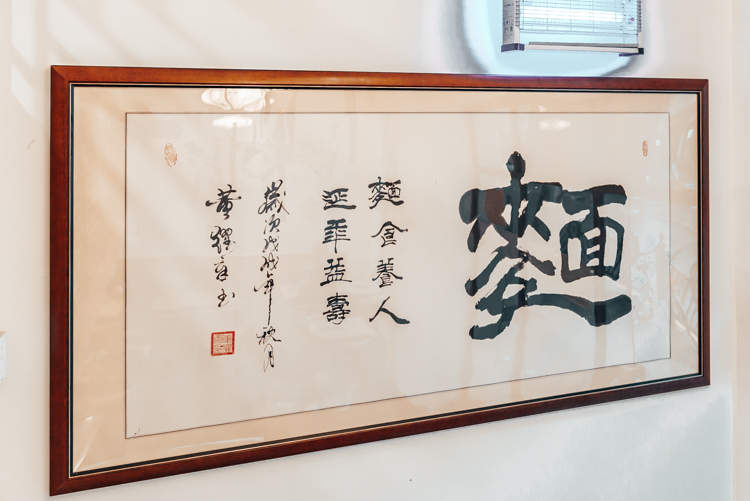 麵
麵食養人
延年益壽
歲次戊戌年秋月
黄耀书